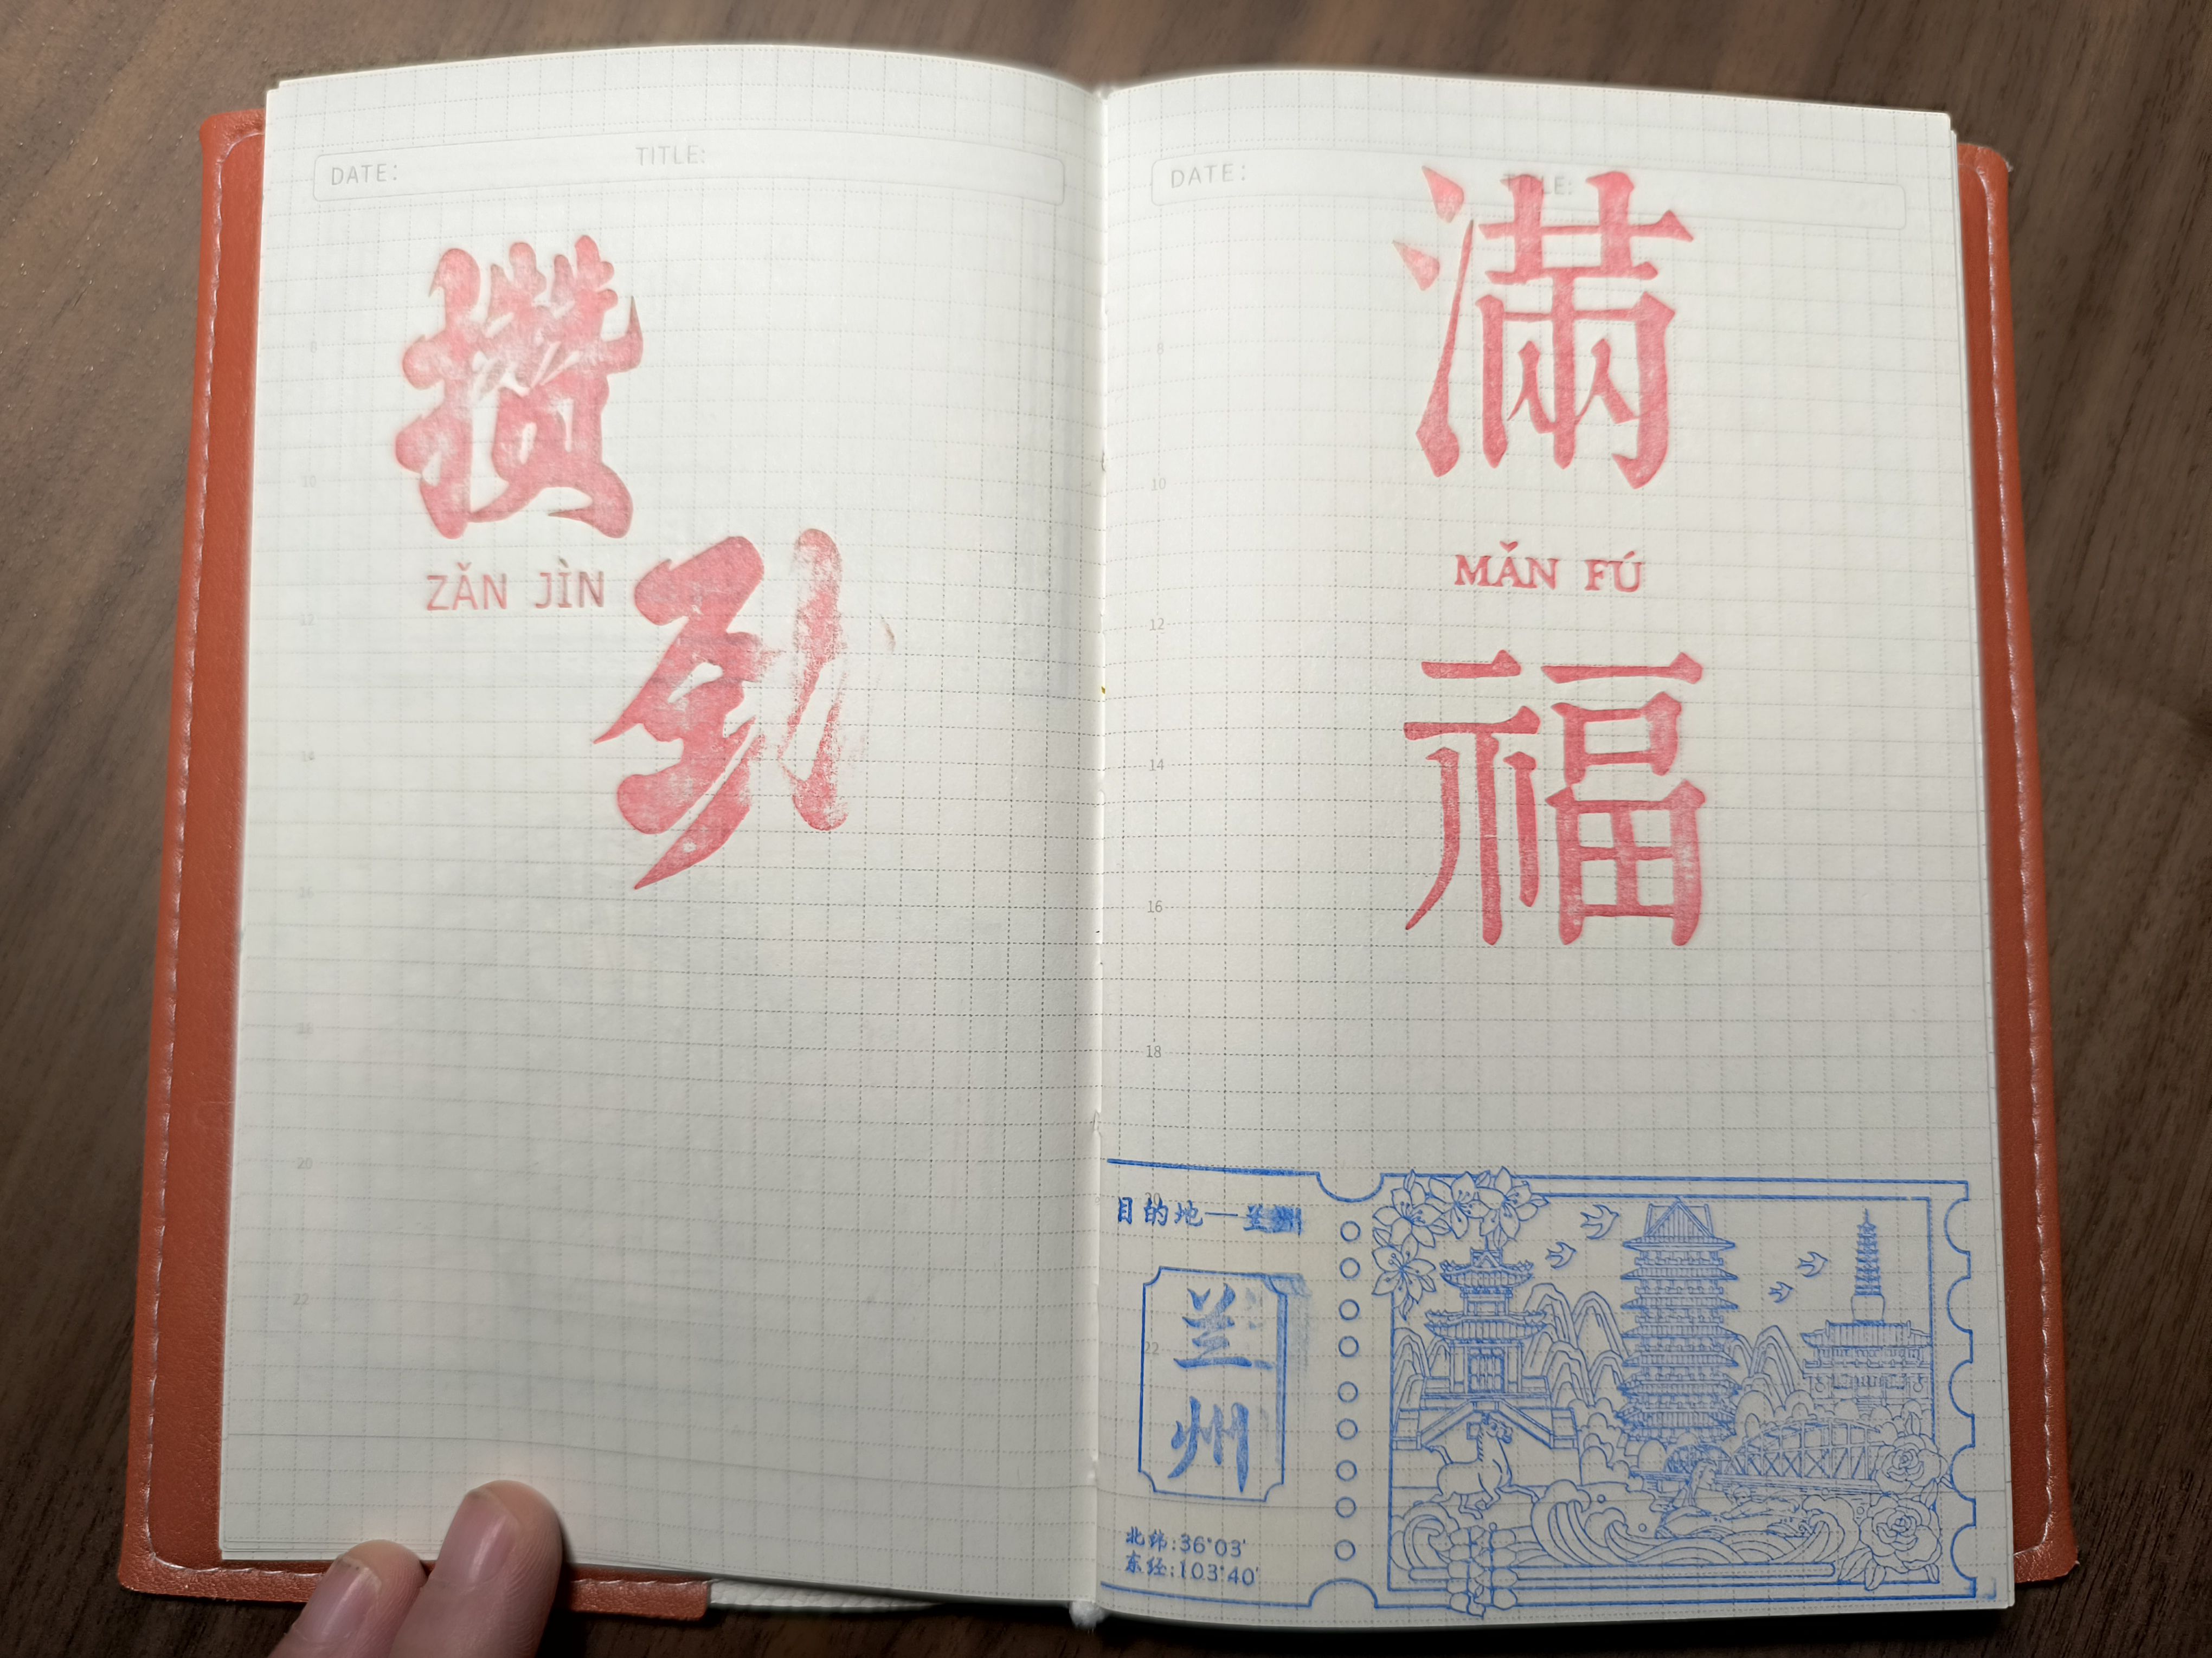 DATE: TITLE:
攒
ZǍN JÌN
劲
8
10
12
14
16
18
20
22
DATE: TITLE:
滿
MǍN FÚ
福
8
10
12
14
16
18
20
22
目的地—兰州
兰
州
北纬:36°03'
东经:103°40'